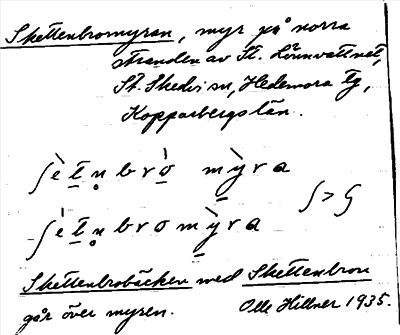 Skettenbromyran, myr på norra
stranden av St. Lönnvattnet,
St. Skedvi sn, Hedemora tg,
Kopparbergs län.
ʃètn̥brò mỳra
ʃ > ʂ
ʃétn̥bromỳra
Skettenbrobäcken med Skettenbron
går över myren. Olle Hillner 1935.